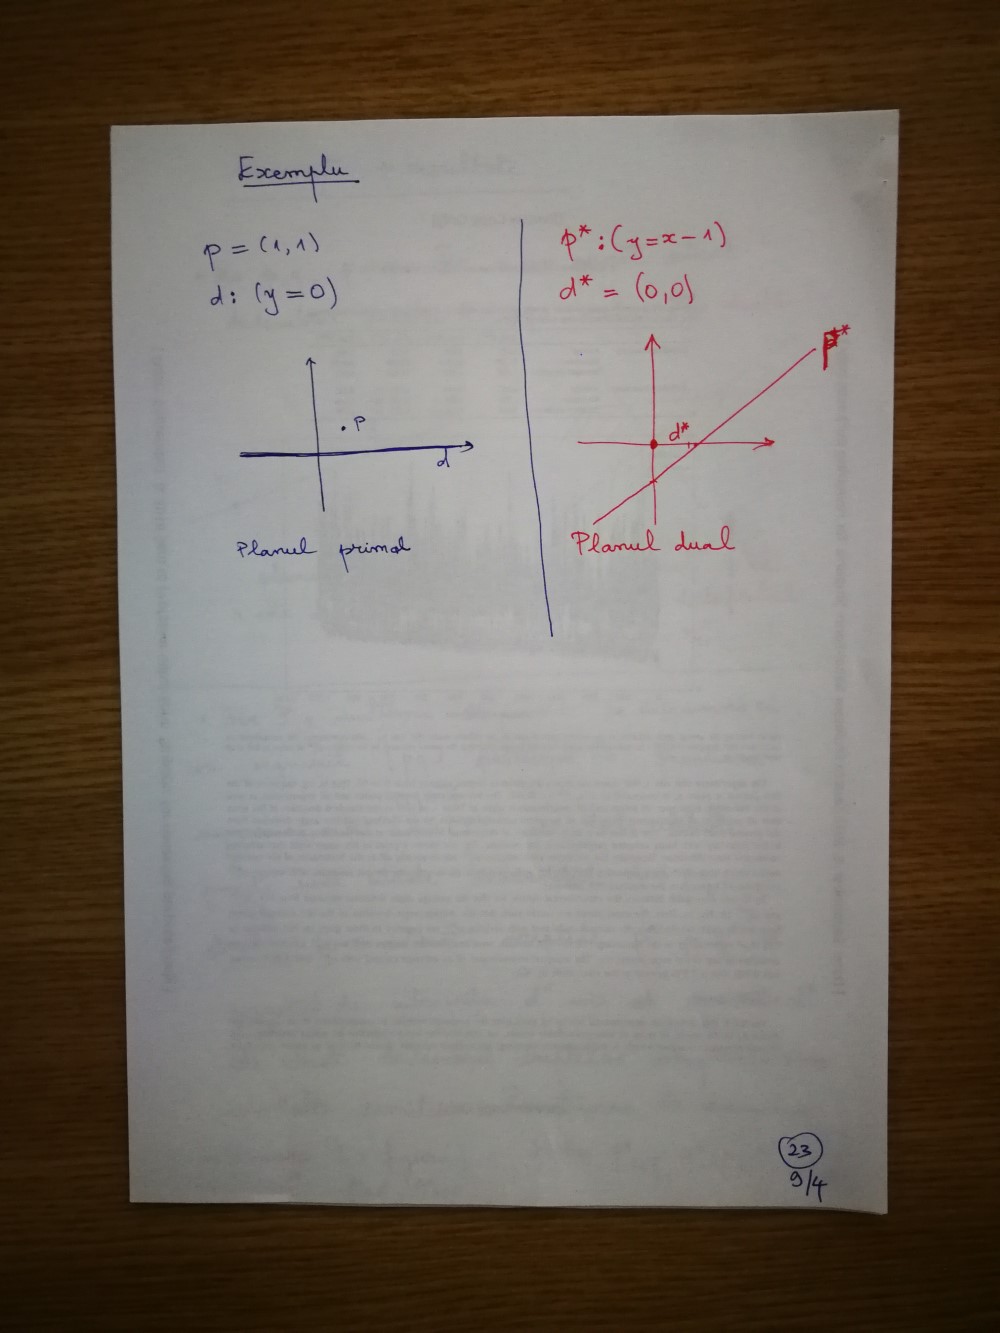 Exemplu
p = (1,1)
d: (y=0)
p
d
Planul primal
p*:(y=x-1)
d* = (0,0)
p*
d*
Planul dual
23
9/4